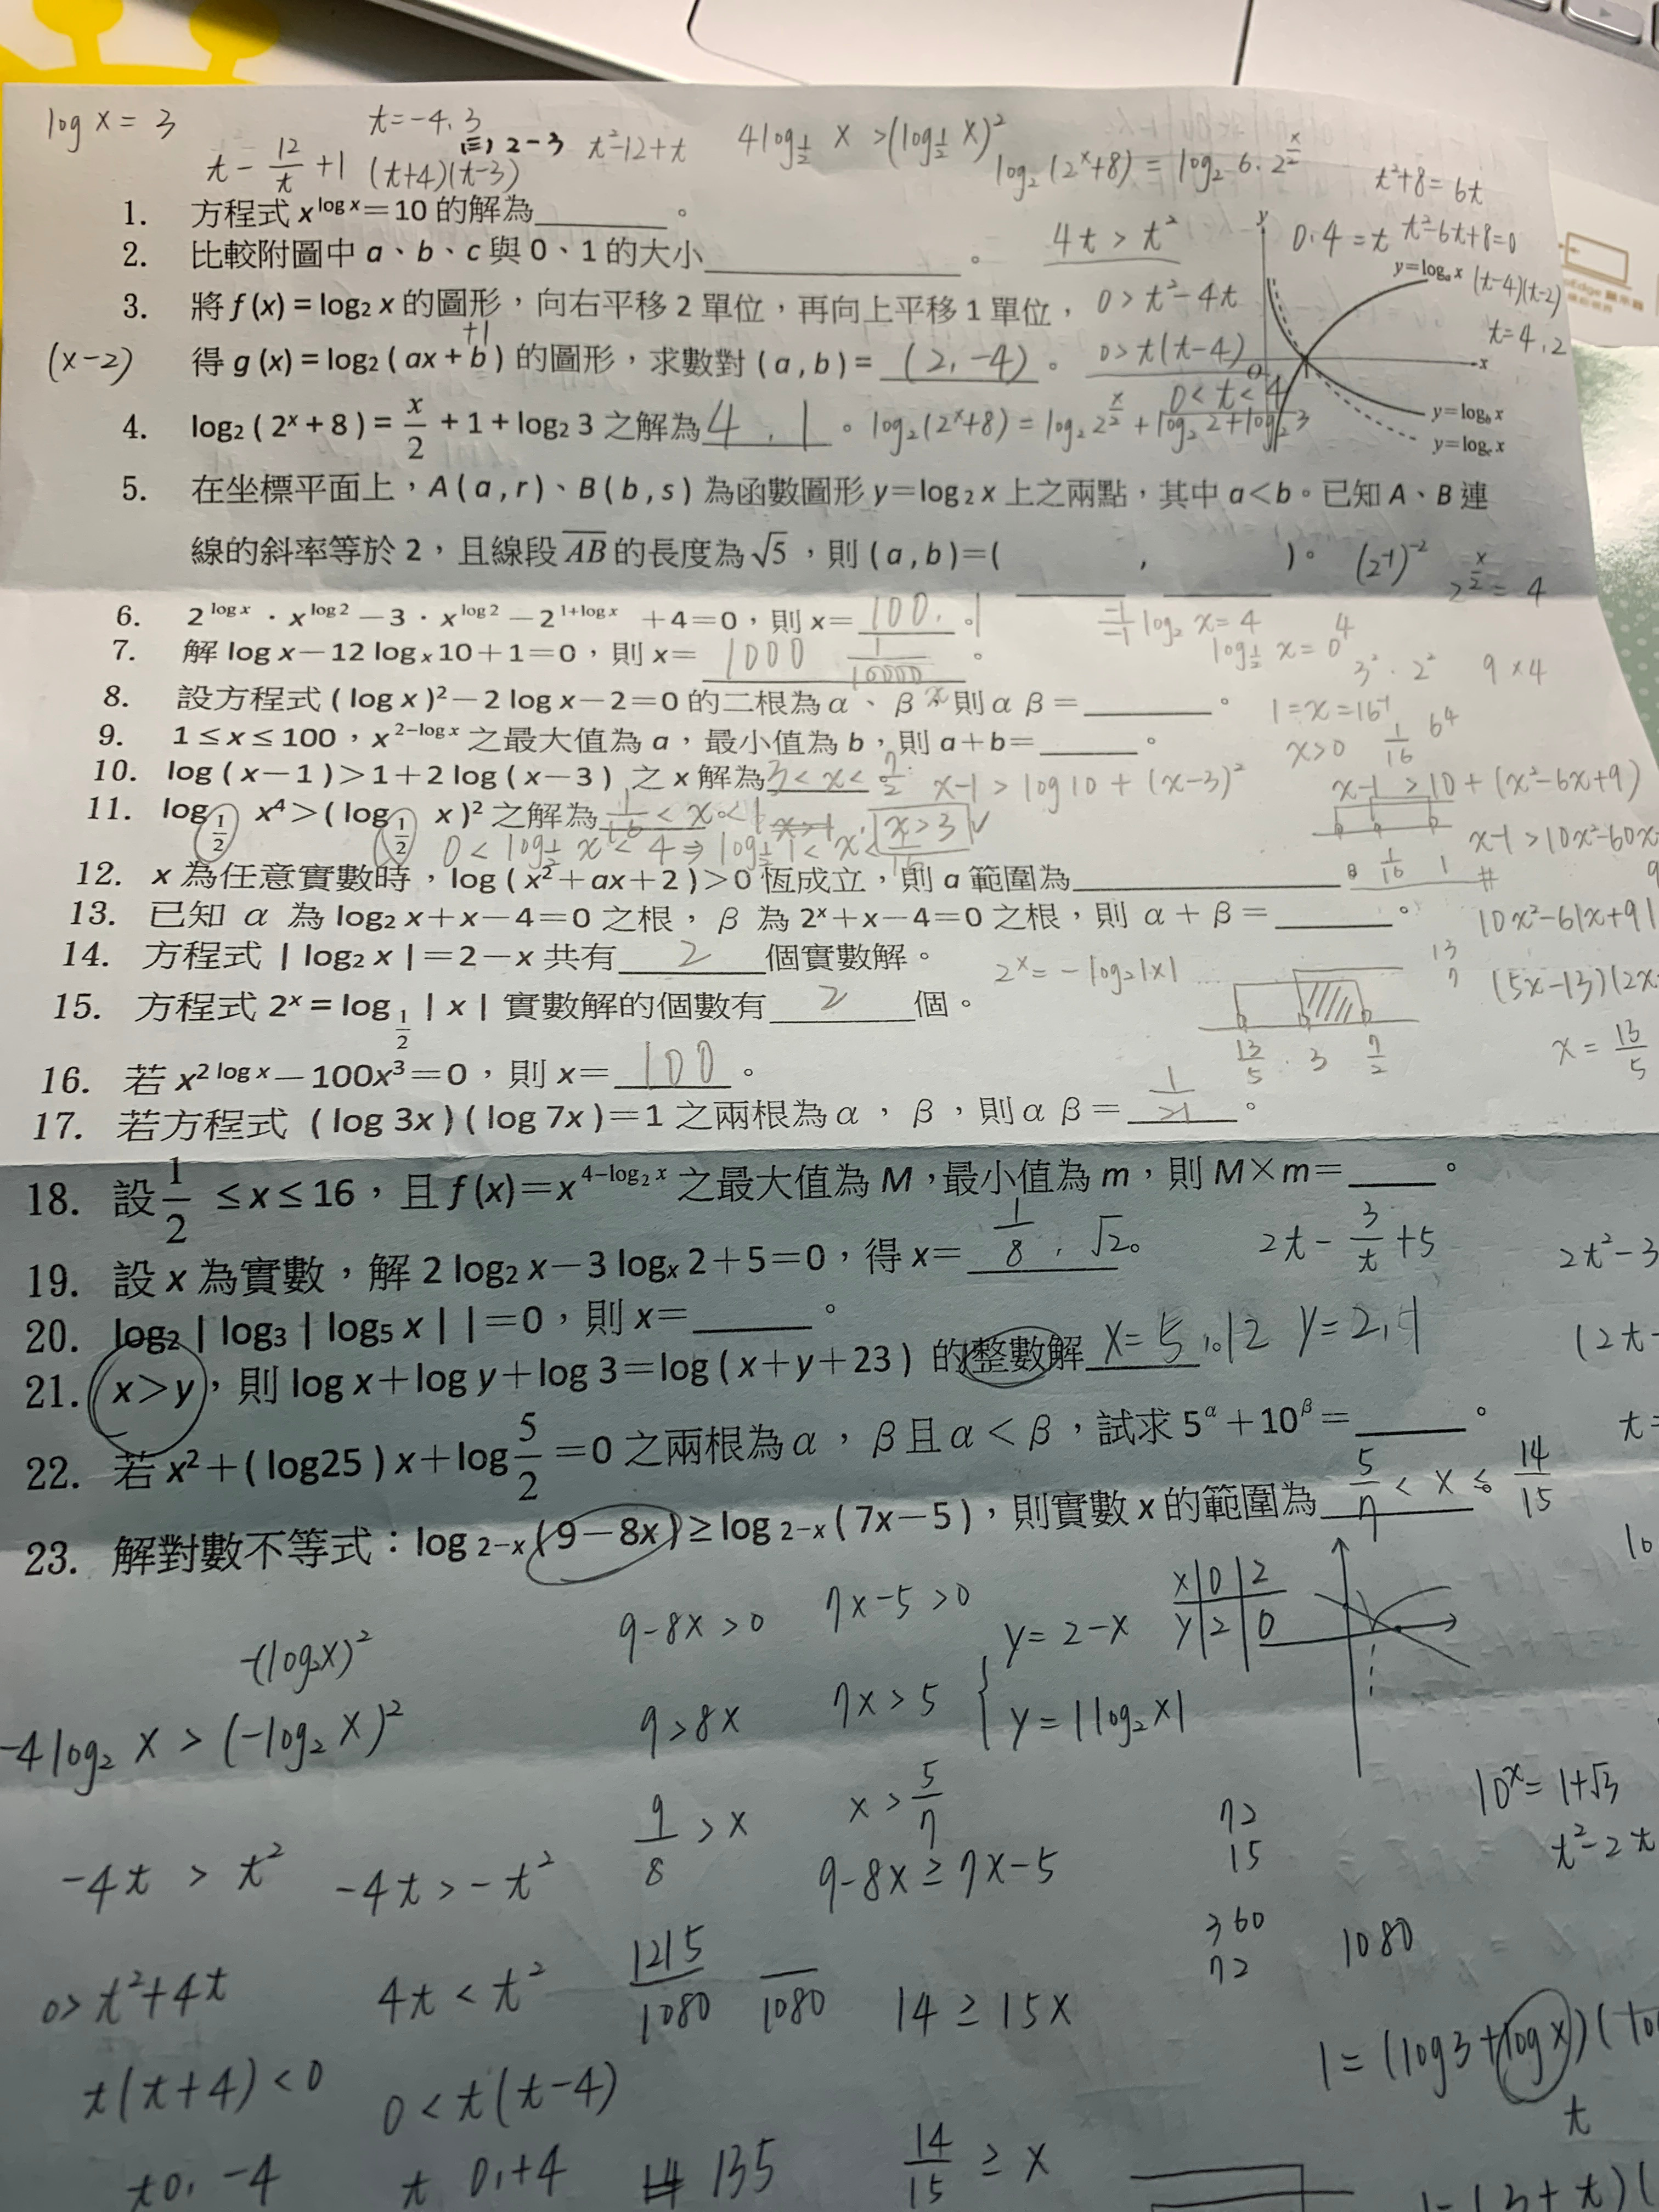 log x = 3
t = -4, 3
(三) 2-3
t² - 12 + t
4log½ x > (log½ x)²
t - 12/t + 1
(t+4)(t-3)
log₂(2ˣ+8) = log₂ 6·2^(x/2)
t²+8 = 6t
1. 方程式 x^(log x)=10 的解為______。
t²-6t+8=0
2. 比較附圖中 a、b、c 與 0、1 的大小______。
4t > t²
y=logₐ x
(t-4)(t-2)
3. 將 f (x) = log₂ x 的圖形，向右平移 2 單位，再向上平移 1 單位，
0 > t²-4t
t=4, 2
(x-2)
+1
得 g (x) = log₂ ( ax + b ) 的圖形，求數對 ( a , b ) = (2, -4)。
0 > t(t-4)
x
0 < t < 4
y=log_b x
4. log₂ ( 2ˣ + 8 ) = x/2 + 1 + log₂ 3 之解為 4 , 1。
log₂(2ˣ+8) = log₂ 2^(x/2) + log₂ 2 + log₂ 3
y=log_c x
5. 在坐標平面上，A ( a , r )、B ( b , s ) 為函數圖形 y=log₂ x 上之兩點，其中 a<b。已知 A、B 連
線的斜率等於 2，且線段 AB 的長度為√5，則 ( a , b )=( ______ , ______ )。
(2⁻¹)⁻²
2^(x/2) = 4
6. 2^(log x)·x^(log 2)－3·x^(log 2)－2^(1+log x) +4=0，則 x= 100, 1。
log₂ x = 4
7. 解 log x－12 logₓ 10+1=0，則 x= 1000 1/10000。
3²·2² 9×4
8. 設方程式 ( log x )²－2 log x－2=0 的二根為α、β，則αβ=______。
9. 1≤x≤100，x^(2－log x) 之最大值為 a，最小值為 b，則 a+b=______。
x>0 1/16 6⁴
10. log ( x－1 )>1+2 log ( x－3 ) 之 x 解為 3 < x < 7/2
x-1 > log10 + (x-3)²
x-1 > 10 + (x²-6x+9)
11. log½ x⁴>( log½ x )² 之解為 1/16 < x < 1
x>3
x-1 > 10x²-60x
12. x 為任意實數時，log ( x²+ax+2 )>0 恆成立，則 a 範圍為______
1/16 1
13. 已知 α 為 log₂ x+x－4=0 之根，β 為 2ˣ+x－4=0 之根，則 α+β=______。
10x²-61x+91
14. 方程式 | log₂ x |=2－x 共有 2 個實數解。
2ˣ = -log₂|x|
(5x-13)(2x
15. 方程式 2ˣ = log½ | x | 實數解的個數有 2 個。
13/5 3 7/2
x = 13/5
16. 若 x^(2 log x)－100x³=0，則 x= 100。
17. 若方程式 ( log 3x ) ( log 7x )=1 之兩根為α，β，則αβ= 1/21。
18. 設 1/2 ≤x≤16，且 f (x)=x^(4－log₂ x) 之最大值為 M，最小值為 m，則 M×m=____。
19. 設 x 為實數，解 2 log₂ x－3 logₓ 2+5=0，得 x= 1/8 , √2。
2t - 3/t + 5
2t²-3
20. log₂ | log₃ | log₅ x | |=0，則 x=______。
21. x>y，則 log x+log y+log 3=log ( x+y+23 ) 的整數解 x= 5, 12 y=2,
(2t-
22. 若 x²+( log25 ) x+log 5/2 =0 之兩根為α，β且α<β，試求 5^α+10^β=______。
t=
23. 解對數不等式：log ₂₋ₓ ( 9－8x )≥log ₂₋ₓ ( 7x－5 )，則實數 x 的範圍為 5/7 < x ≤ 14/15
-(log₂x)²
9-8x > 0
7x-5 > 0
y = 2-x
x 0 2
y 2 0
-4log₂ x > (-log₂ x)²
9 > 8x
7x > 5
y = |log₂ x|
10ˣ = 1+√3
-4t > t²
-4t > -t²
9/8 > x
x > 5/7
9-8x ≥ 7x-5
72
15
t²-2t
360
72
1080
0 > t²+4t
4t < t²
1215/1080
1080
14 ≥ 15x
1 = (log3+logx)(lo
t
t(t+4) < 0
0 < t(t-4)
t 0, -4
t 0, +4
135
14/15 ≥ x